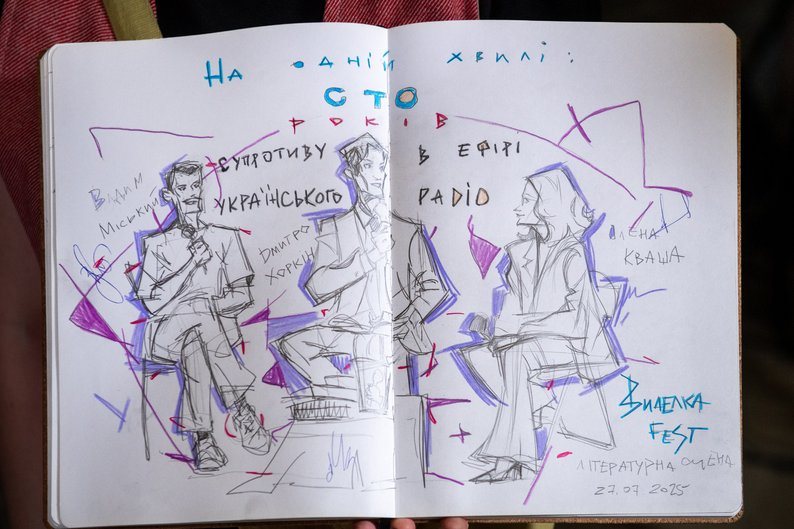 На одній хвилі:
СТО
РОКІВ
СУПРОТИВУ В ЕФІРІ
УКРАЇНСЬКОГО РАДІО
ВАДИМ
МІСЬКИЙ
ДМИТРО
ХОРКІН
ОЛЕНА
КВАША
ВИДЕЛКА
FEST
ЛІТЕРАТУРНА СЦЕНА
27.07 2025